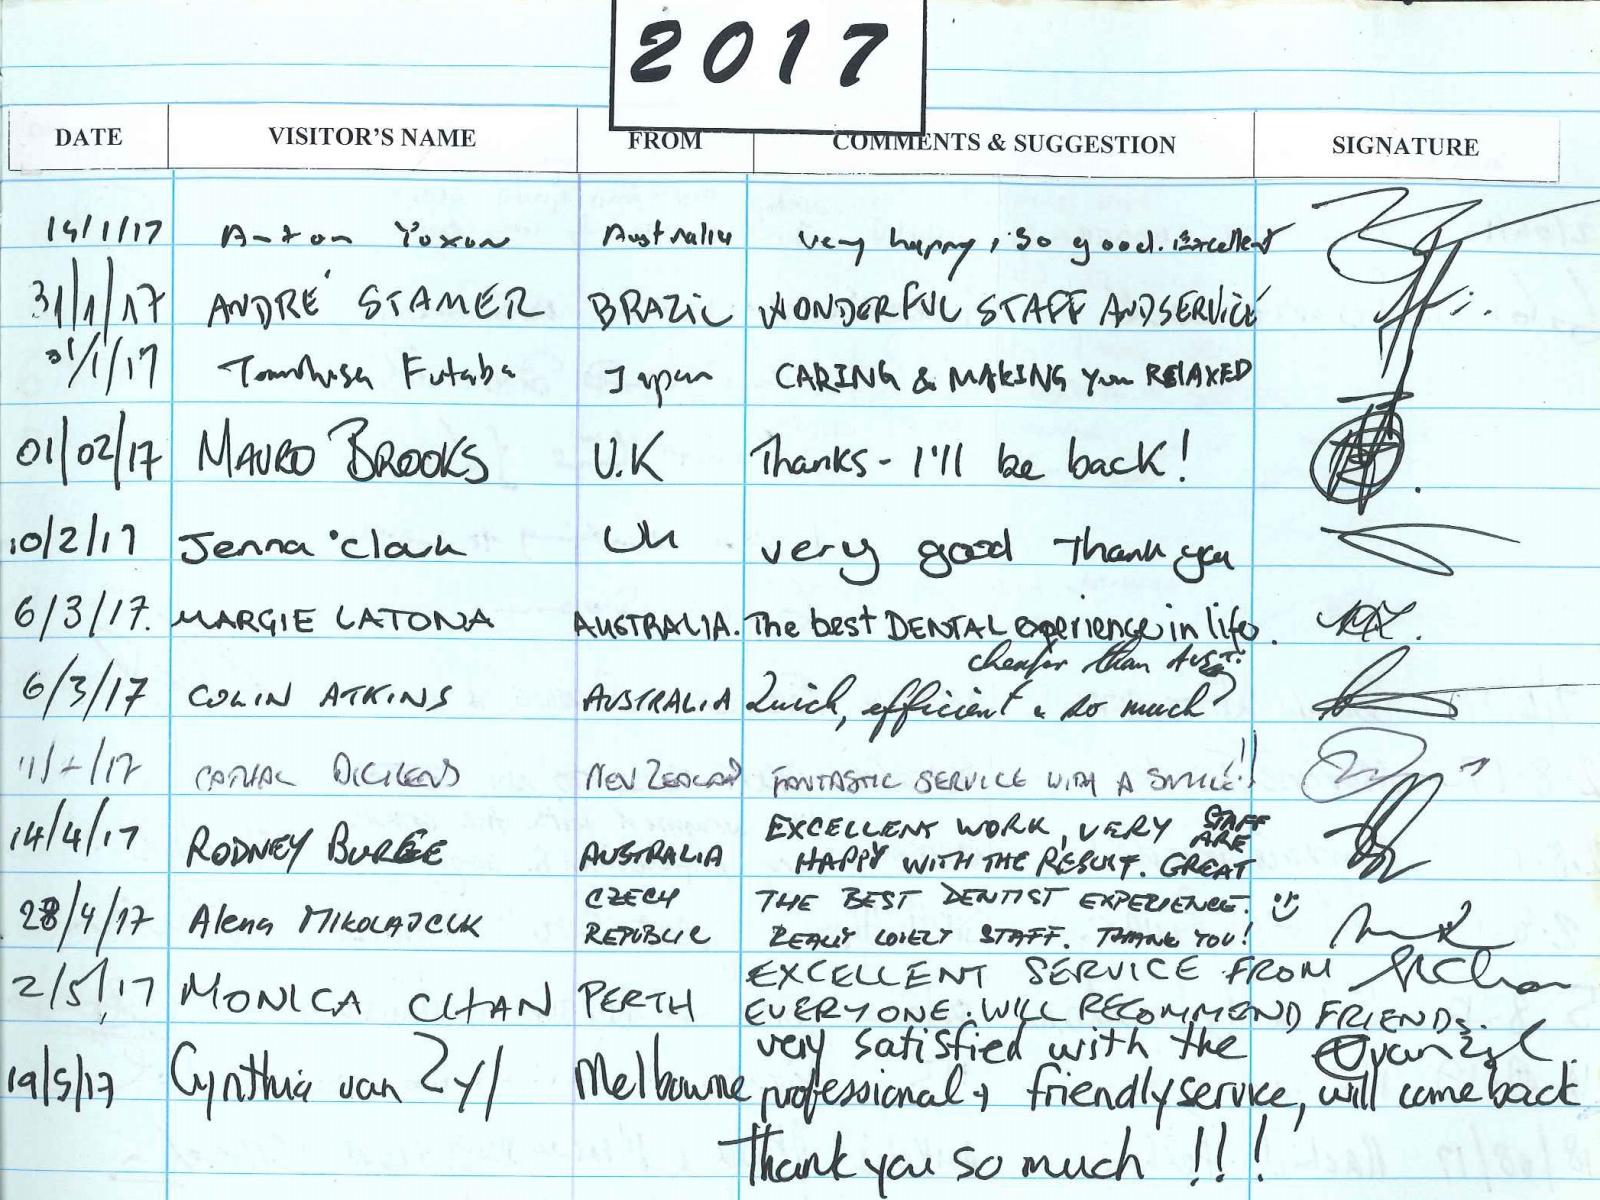 2017
DATE VISITOR'S NAME FROM COMMENTS & SUGGESTION SIGNATURE
14/1/17 Anton Yoxon Australia very happy, so good. Excellent
31/1/17 ANDRÉ STAMER BRAZIL WONDERFUL STAFF AND SERVICE
31/1/17 Futaba Japan CARING & MAKING you RELAXED
01/02/17 MAURO BROOKS U.K Thanks - I'll be back!
10/2/17 Jenna Clark UK very good Thank you
6/3/17. MARGIE LATONA AUSTRALIA. The best DENTAL experience in life.
cheaper than AUST.
6/3/17 COLIN ATKINS AUSTRALIA Quick, efficient & so much
/17 DICKENS NEW ZEALAND FANTASTIC SERVICE WITH A SMILE!!
14/4/17 RODNEY BURGE AUSTRALIA EXCELLENT WORK, VERY STAFF ARE
HAPPY WITH THE RESULT. GREAT
28/4/17 Alena MIKOLAJCUK CZECH REPUBLIC THE BEST DENTIST EXPERIENCE.
REALLY LOVELY STAFF. THANK YOU!
2/5/17 MONICA CHAN PERTH EXCELLENT SERVICE FROM
EVERYONE. WILL RECOMMEND FRIENDS.
19/5/17 Cynthia van Zyl Melbourne very satisfied with the
professional + friendly service, will come back
Thank you so much !!!